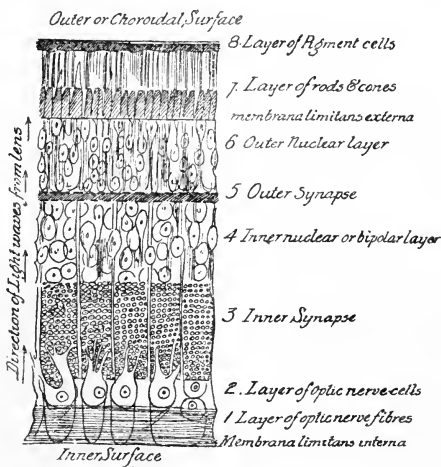 Outer or Choroidal, Surface
8. Layer of Pigment cells
7. Layer of rods & cones
membrana limitans externa
6 Outer Nuclear layer
5 Outer Synapse
4 Inner nuclear or bipolar layer
3 Inner Synapse
2. Layer of optic nerve-cells
1 Layer of optic nerve fibres
Membrana limitans interna
Inner Surface
Direction of Light waves from lens